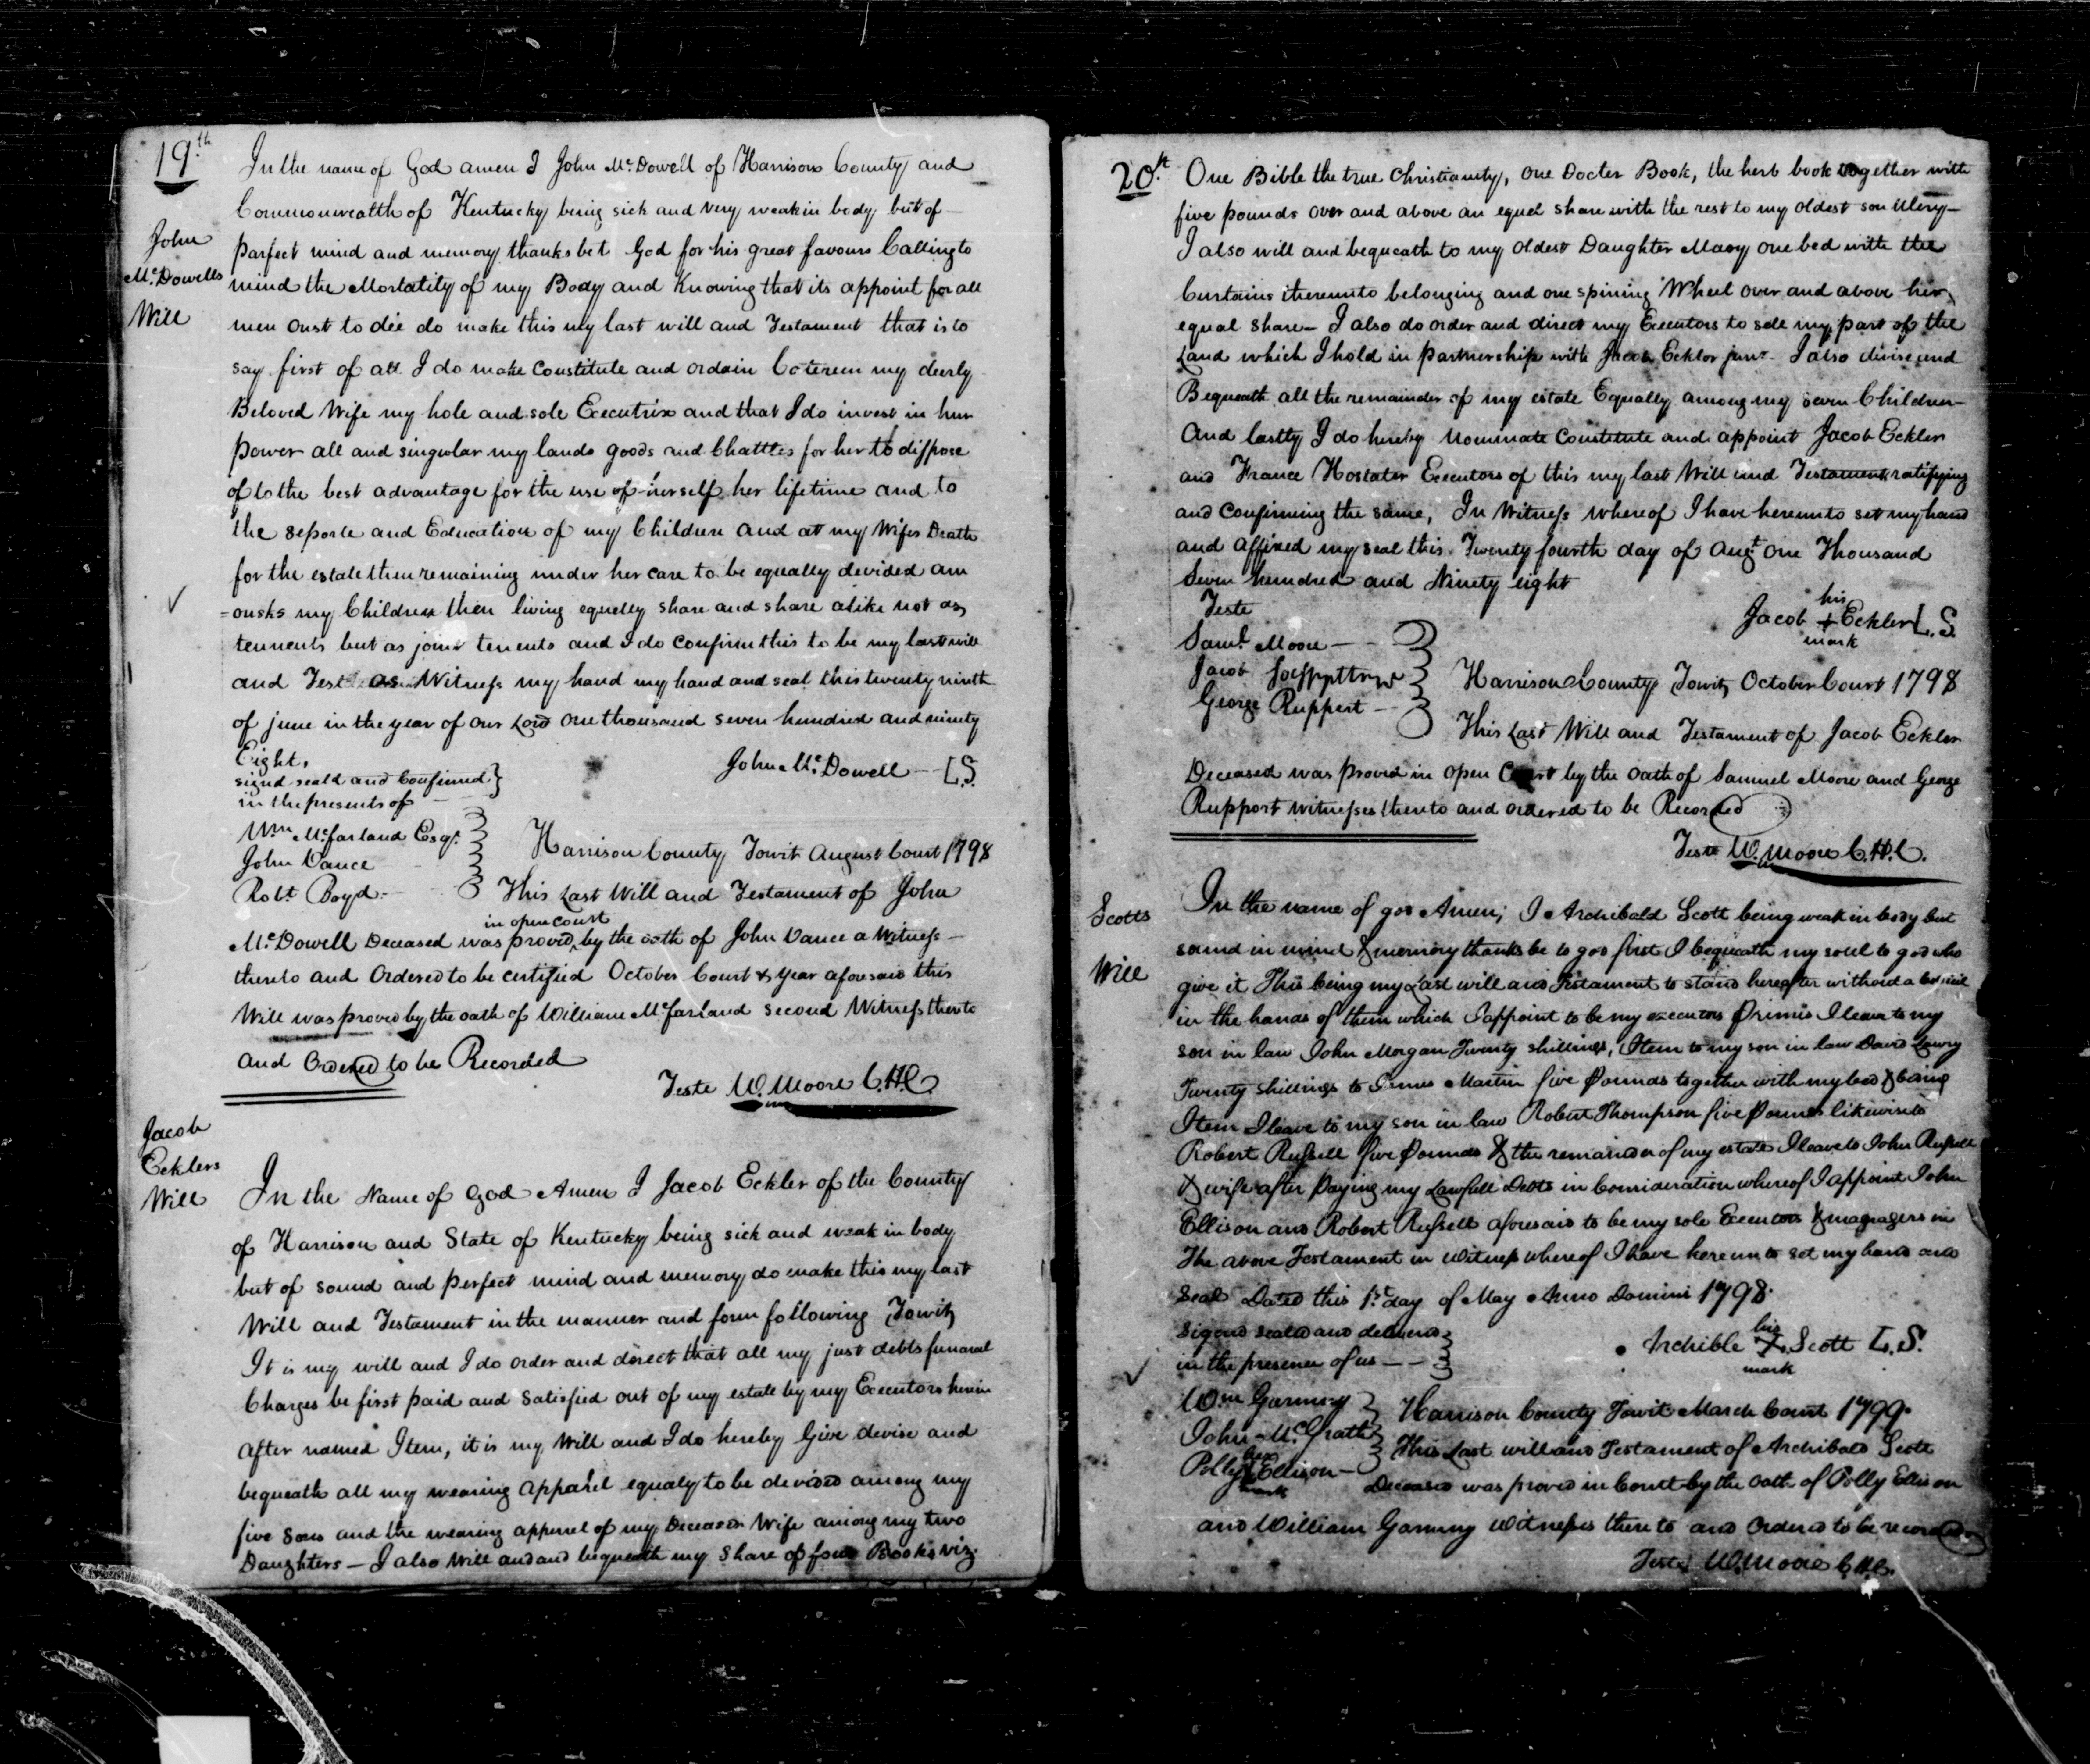 19.th
In the name of God amen I John Mc.Dowell of Harrison County and
Commonwealth of Kentucky being sick and very weak in body but of
John
Mc.Dowells
Will
parfect mind and memory thanks bet God for his great favours Calling to
mind the Mortatity of my Body and Knowing that its appoint for all
men onst to die do make this my last will and Testament that is to
say first of all I do make Constitute and ordain Catereen my deerly
Beloved Wife my hole and sole Executrix and that I do invest in hur
power all and singular my lands goods and Chattles for her to dispose
of to the best advantage for the use of herself her lifetime and to
the seporte and Education of my Children and at my Wifes Death
for the estate then remaining under her care to be equally devided am
=onsks my Children then living equelly share and share alike not as
tennents but as joint tenents and I do confirm this to be my last will
and Test as Witness my hand my hand and seal this twenty ninth
of june in the year of our Lord one thousand seven hundred and ninety
Eight,
signd seald and Confirmed
in the presents of
John Mc.Dowell - L.S.
Wm Mcfarland Esqr.
John Vance
Robt. Boyd -
Harrison County Towit August Court 1798
This Last Will and Testament of John
in open court
Mc.Dowell Deceased was proved by the oath of John Vance a Witness
thereto and Ordered to be certified October Court & year aforesaid this
Will was proved by the oath of William Mcfarland second Witness thereto
and Ordered to be Recorded
Teste W. Moore C.H.C.
Jacob
Ecklers
Will
In the Name of God Amen I Jacob Eckler of the County
of Harrison and State of Kentucky being sick and weak in body
but of sound and perfect mind and memory do make this my last
Will and Testament in the manner and form following Towit
It is my will and I do order and direct that all my just debts funaral
Charges be first paid and satisfied out of my estate by my Executors herein
after named Item, it is my Will and I do hereby Give devise and
bequeath all my wearing apparel equaly to be devided among my
five sons and the wearing apperrel of my Deceased Wife among my two
Daughters — I also Will and and bequeath my share of four Books viz.
20.th
One Bible the true Christianity, one Docter Book, the herb book together with
five pounds over and above an equal share with the rest to my oldest son
I also will and bequeath to my oldest Daughter Mary one bed with the
Curtains thereunto belonging and one spining Wheel over and above her
equal share — I also do order and direct my Executors to sell my part of the
Land which I hold in partnership with Jacob Eckler junr. I also divise and
Bequeath all the remainder of my estate Equally among my seven Children
And lastly I do hereby Nominate Constitute and appoint Jacob Eckler
and France Hostater Executors of this my last Will and Testament ratifying
and confirming the same, In Witness whereof I have hereunto set my hand
and affixed my seal this Twenty fourth day of Augt. one Thousand
Seven hundred and Ninety eight
Teste
his
Jacob + Eckler L.S.
mark
Saml. Moore
Jacob
George Ruppert
Harrison County Towit October Court 1798
This Last Will and Testament of Jacob Eckler
Deceased was proved in open Court by the oath of Samuel Moore and George
Rupport witnesses thereto and ordered to be Recorded
Teste W. Moore C.H.C.
Scotts
Will
In the name of god Amen; I Archibald Scott being weak in body but
sound in mind & memory thanks be to god first I bequeath my soul to god who
give it This being my Last will and Testament to stand hereafter without a
in the hands of them which I appoint to be my executors Primis I leave to my
son in law John Morgan Twenty shillings, Item to my son in law David Lowry
Twenty shillings to Martin five Pounds together with my bed &
Item I leave to my son in law Robert Thompson five Pounds likewise to
Robert Russell five Pounds & the remainder of my estate I leave to John Russell
& wife after Paying my Lawfull Debts in Consideration whereof I appoint John
Ellison and Robert Russell aforesaid to be my sole Executors & managers in
The above Testament in witness whereof I have hereunto set my hand and
Seal Dated this 1st. day of May Anno Domini 1798.
Signd seald and deliverd
in the presence of us
his
Archible Scott L.S.
mark
Wm
John McGrath
her
Polly Ellison
mark
Harrison County Towit March Court 1799.
This Last will and Testament of Archibald Scott
Deceased was proved in Court by the oath of Polly Ellison
and William witnesses thereto and Ordered to be recorded
Teste W. Moore C.H.C.